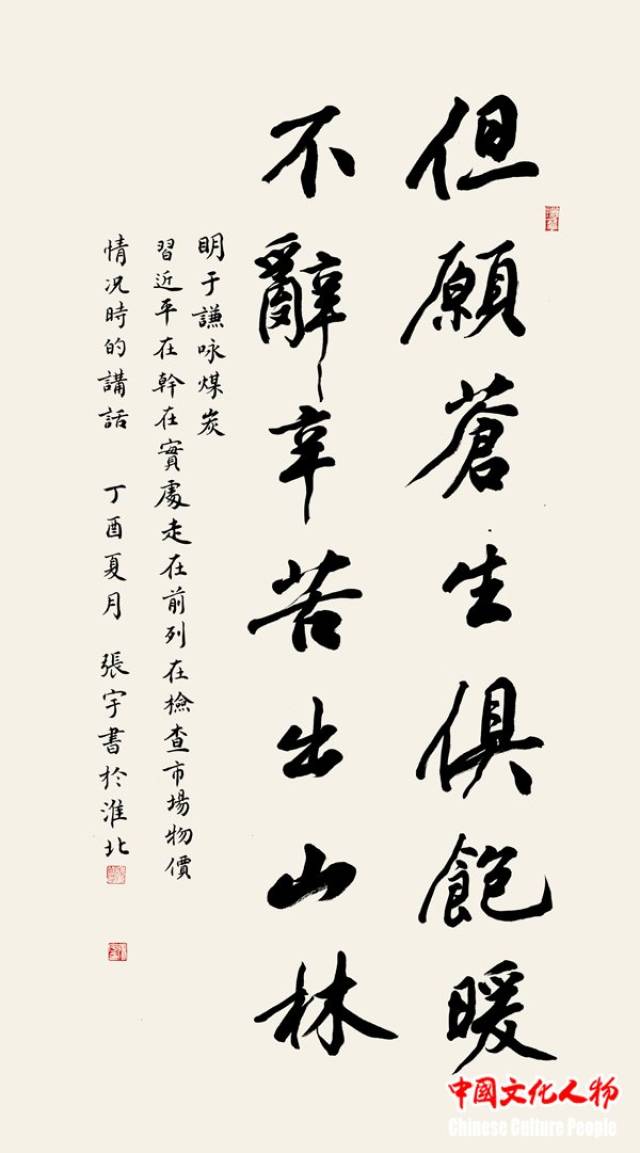 但願蒼生俱飽暖
不辭辛苦出山林
明于謙咏煤炭
習近平在幹在實處走在前列在檢查市場物價
情況時的講話 丁酉夏月 張宇書於淮北
中國文化人物
Chinese Culture People